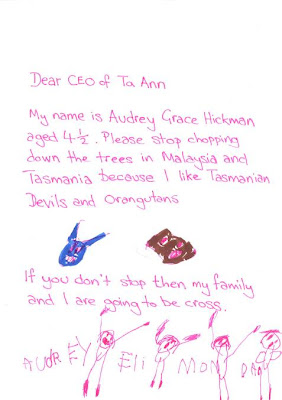 Dear CEO of Ta Ann
My name is Audrey Grace Hickman
aged 4½. Please stop chopping
down the trees in Malaysia and
Tasmania because I like Tasmanian
Devils and Orangutans
If you don't stop then my family
and I are going to be cross.
AUDREY Eli MON DAD